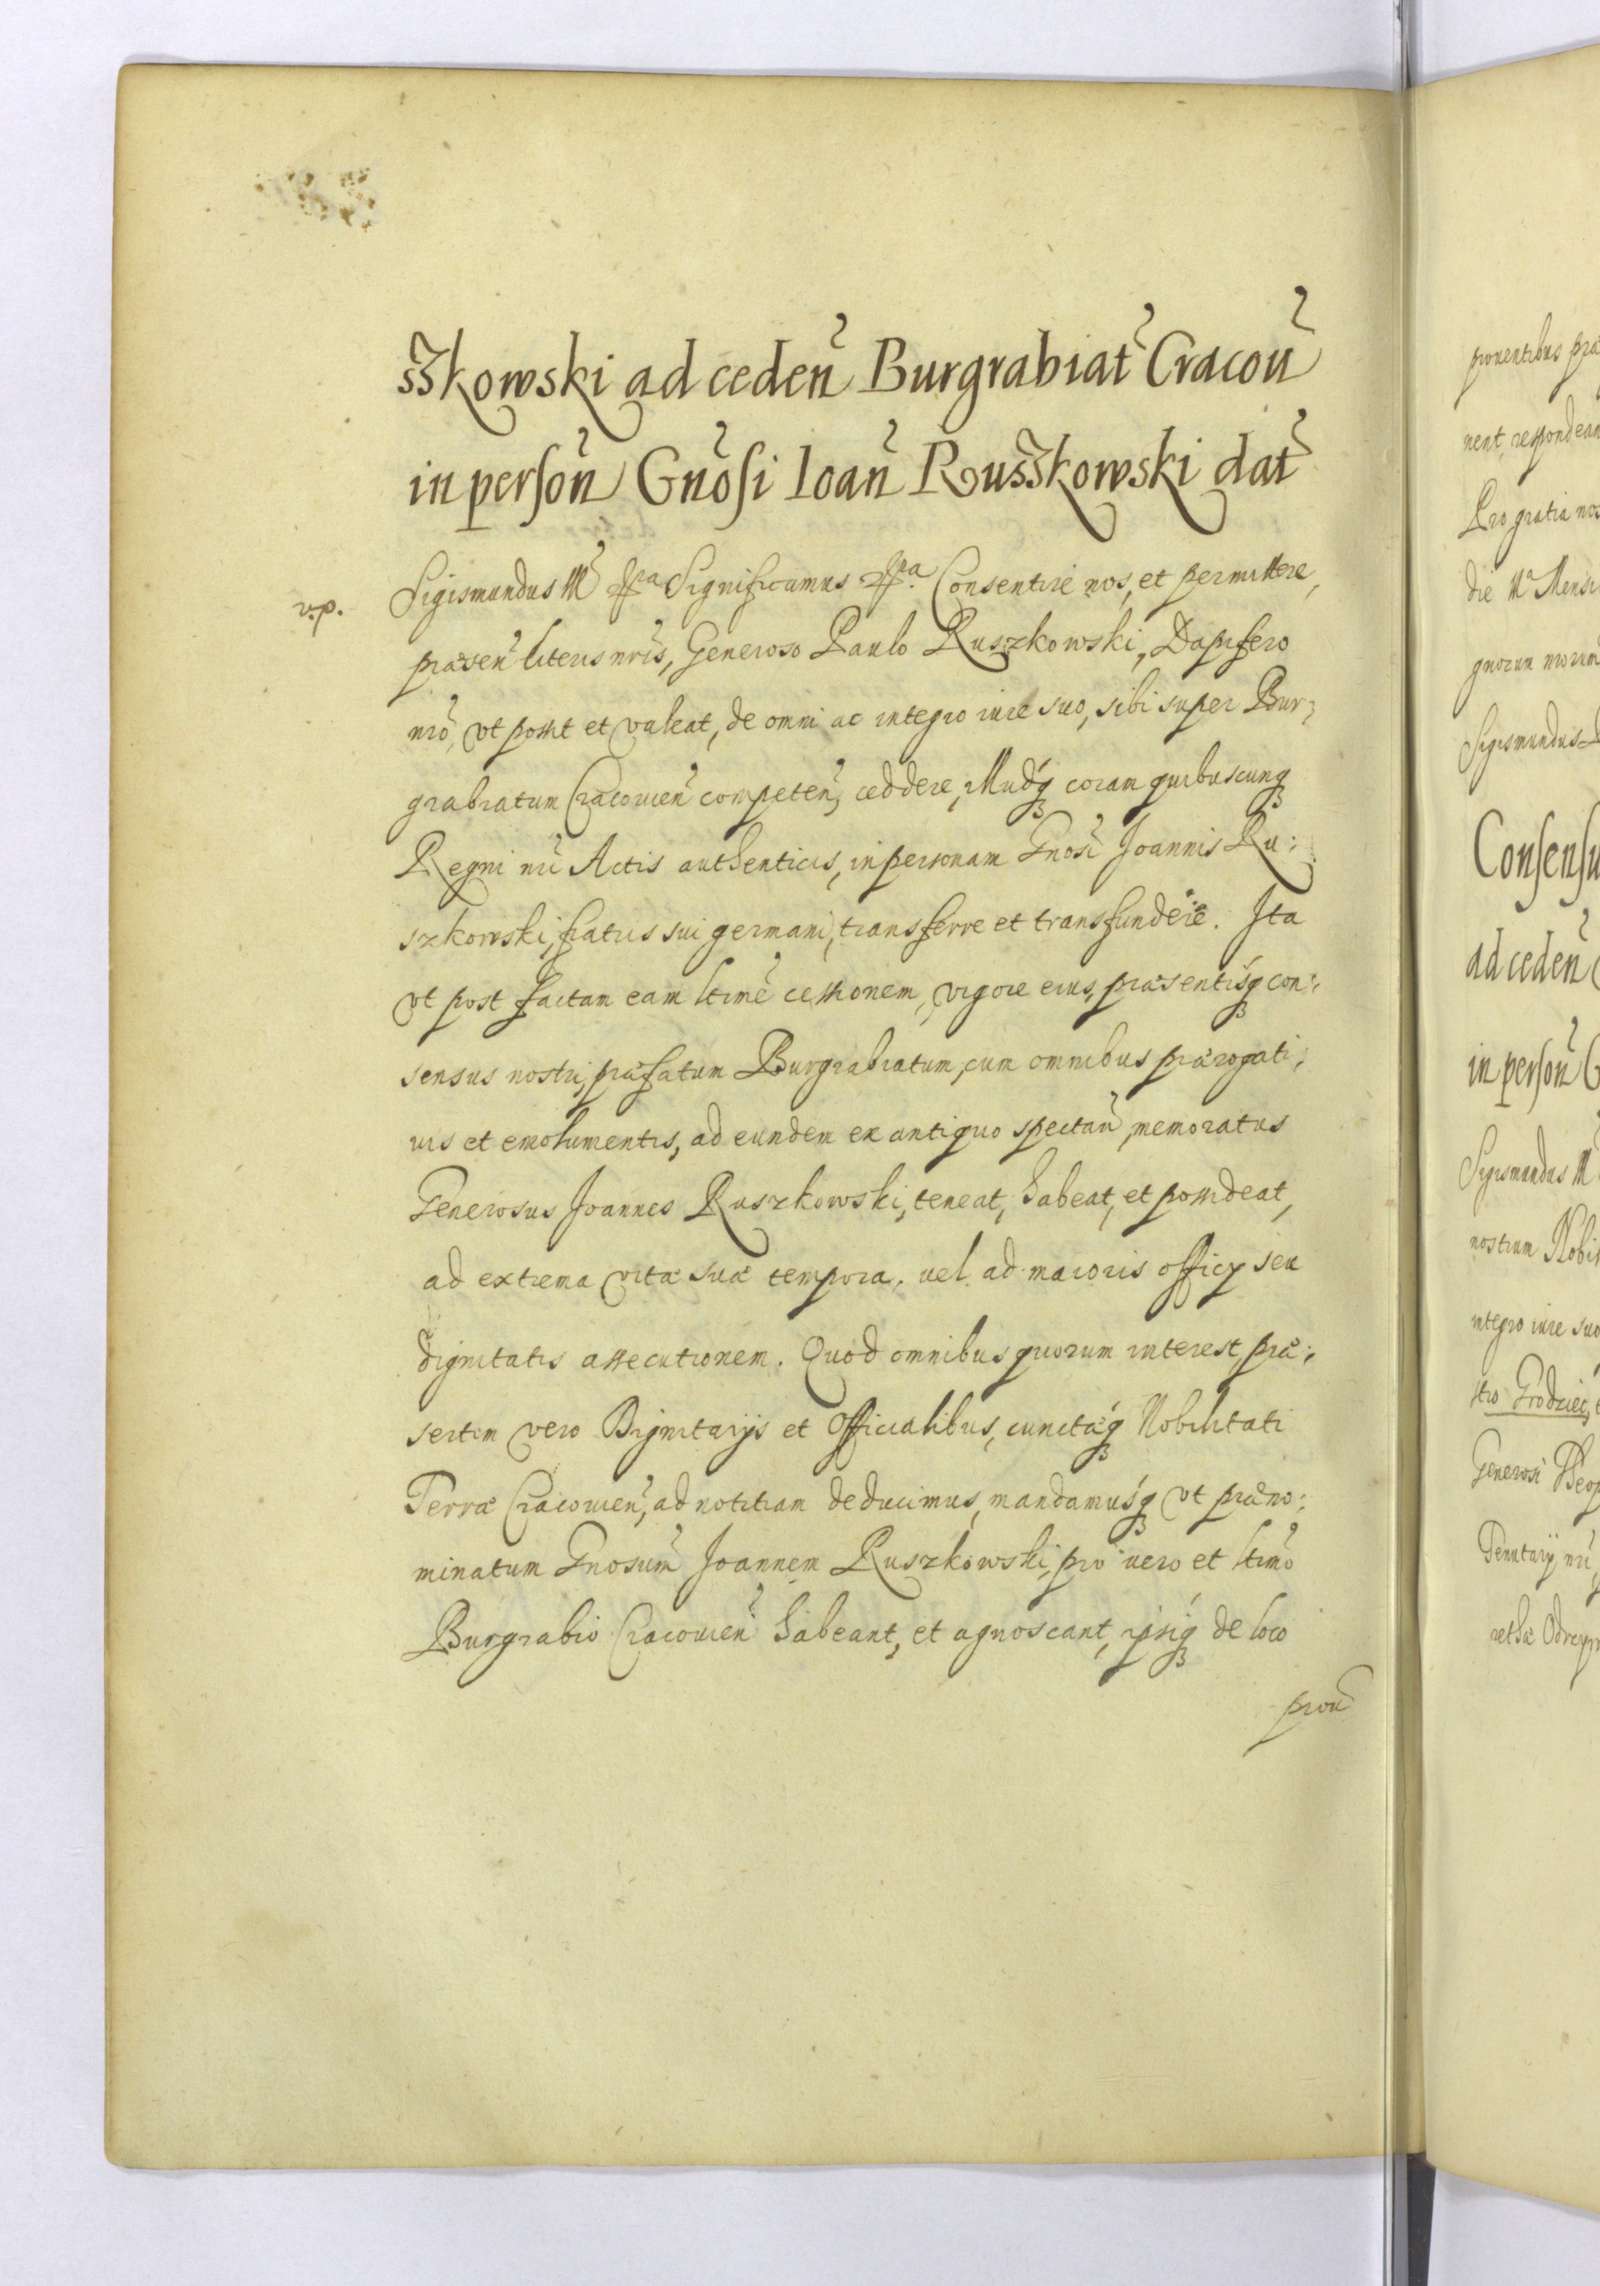 szkowski ad ceden Burgrabiat Cracou
in person Gnosi Ioan Ruszkowski dat
v.p.
Sigismundus M Significamus Consentire nos, et permittere,
præsen literis nris, Generoso Paulo Ruszkowski, Dapifero
nro, vt possit et valeat, de omni ac integro iure suo, sibi super Bur;
grabiatum Cracouien competen, ceddere, illudq coram quibuscunq
Regni nri Actis authenticis, in personam Gnosi Joannis Ru:
szkowski, fratris sui germani, transferre et transfundere. Ita
vt post factam eam ltime cessionem, vigore eius, præsentisq con:
sensus nostri, præfatum Burgrabiatum, cum omnibus prærogati:
uis et emolumentis, ad eundem ex antiquo spectan, memoratus
Generosus Joannes Ruszkowski, teneat, habeat, et possideat,
ad extrema vitæ suæ tempora, uel ad maioris officy seu
dignitatis assecutionem. Quod omnibus quorum interest præ:
sertim vero Dignitarijs et Officialibus, cunctæq Nobilitati
Terræ Cracouien, ad notitiam deducimus, mandamusq vt præno:
minatum Gnosum Joannem Ruszkowski, pro uero et ltimo
Burgrabio Cracouien habeant, et agnoscant, ipsiq de loco
prou
prouentibus præ
nent, respondean
Pro gratia nos
die Mensi
Sigismundus
Consensu
ad ceden
in person G
Sigismundus M
nostrum Nobi
integro iure suo
stro Grodziec,
Generosi